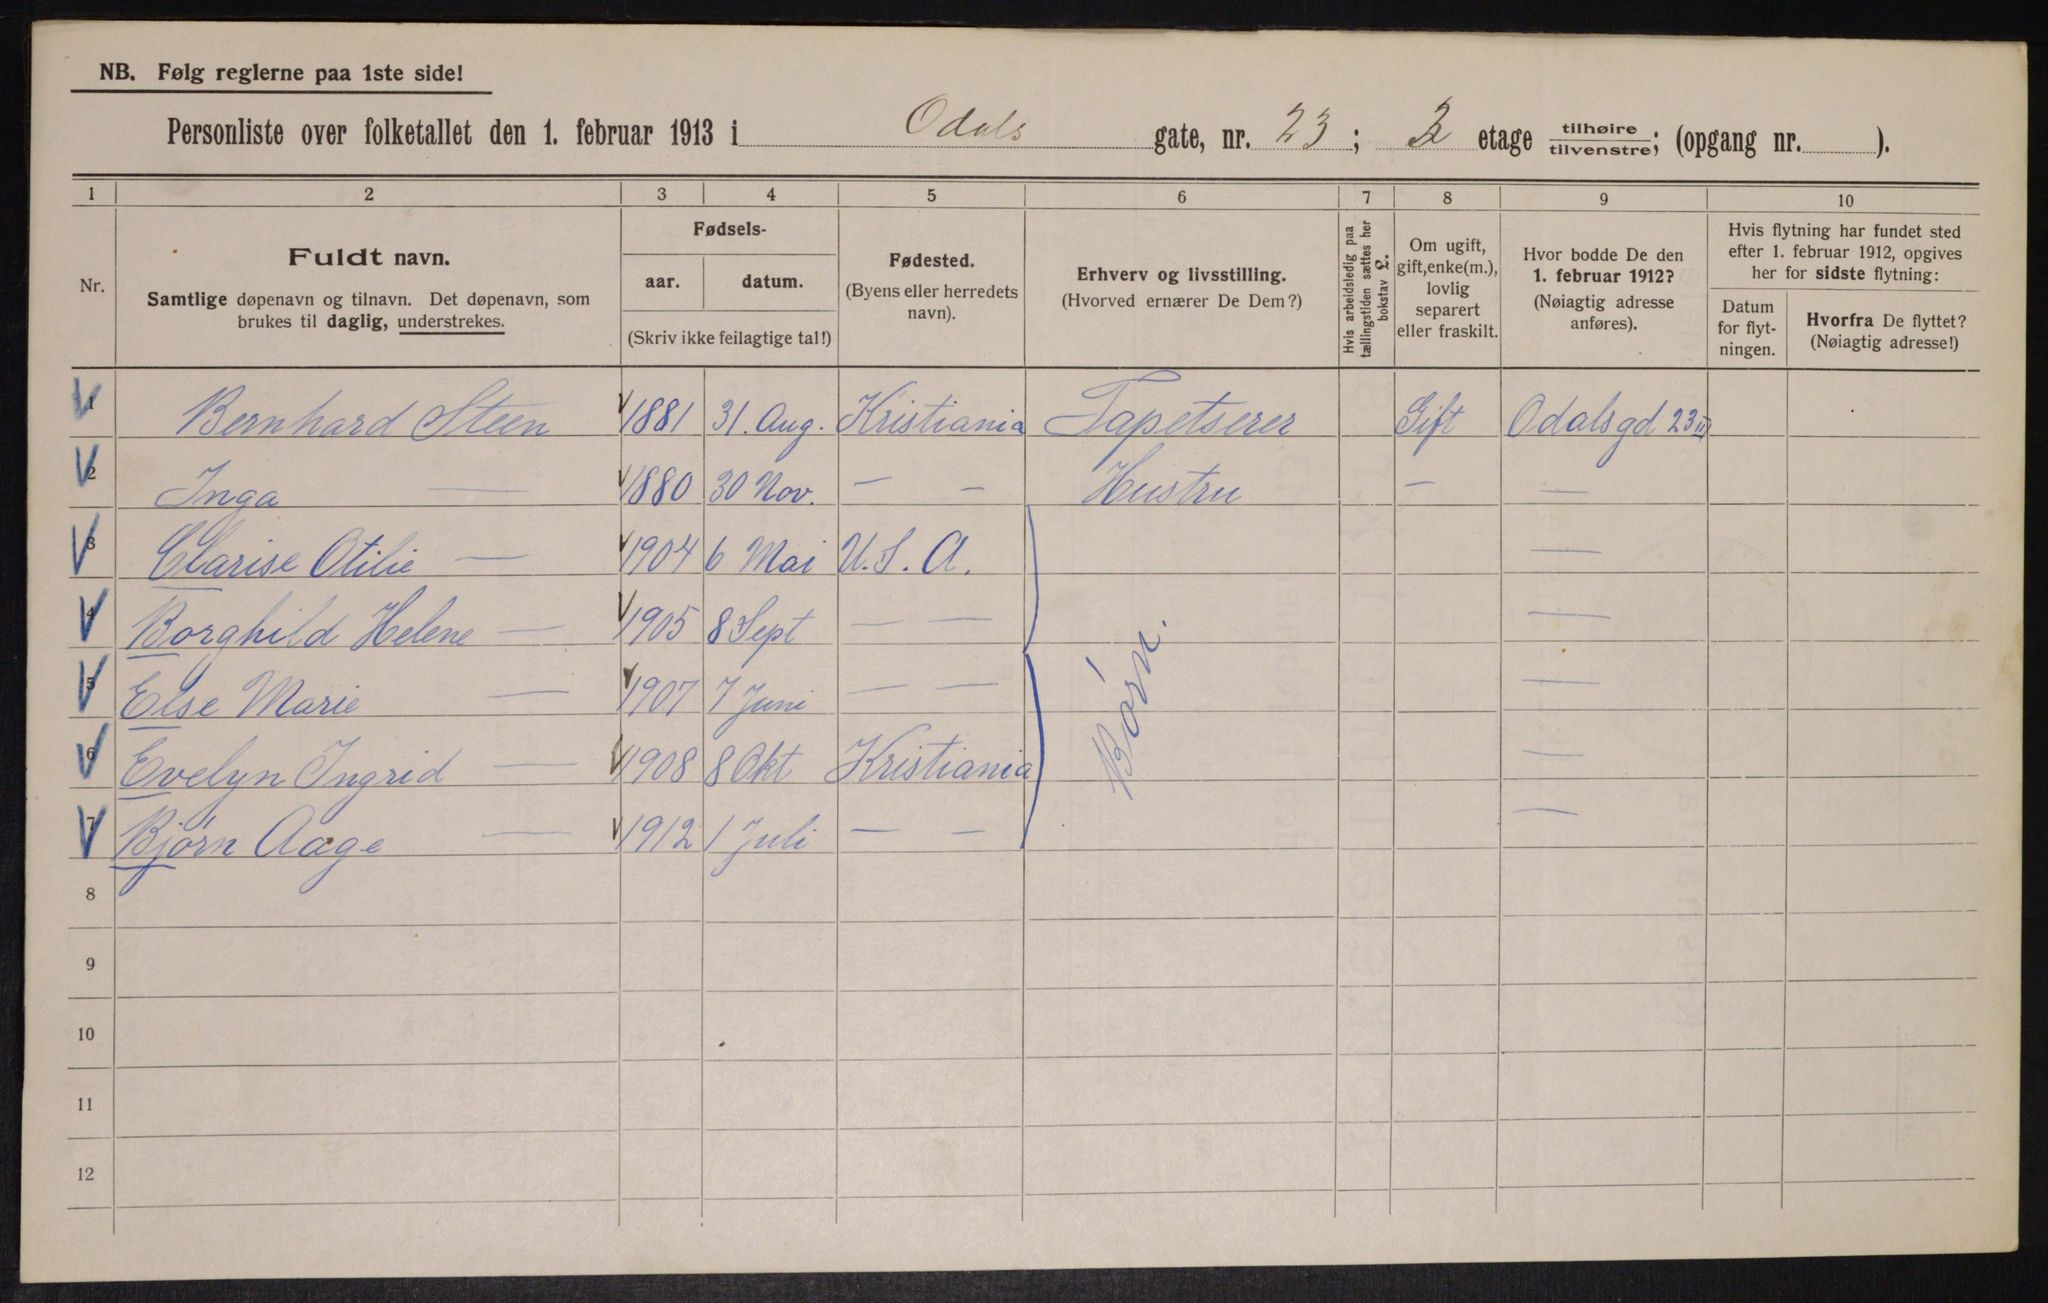 NB. Følg reglerne paa 1ste side!
Personliste over folketallet den 1. februar 1913 i Odals gate, nr. 23; 2 etage tilhøire tilvenstre; (opgang nr. ).
1 2 3 4 5 6 7 8 9 10
Nr.
Fuldt navn.
Samtlige døpenavn og tilnavn. Det døpenavn, som
brukes til daglig, understrekes.
Fødsels-
aar. datum.
(Skriv ikke feilagtige tal!)
Fødested.
(Byens eller herredets
navn).
Erhverv og livsstilling.
(Hvorved ernærer De Dem?)
Hvis arbeidsledig paa
tællingstiden sættes her
bokstav L.
Om ugift,
gift, enke(m.),
lovlig
separert
eller fraskilt.
Hvor bodde De den
1. februar 1912?
(Nøiagtig adresse
anføres).
Hvis flytning har fundet sted
efter 1. februar 1912, opgives
her for sidste flytning:
Datum
for flyt-
ningen.
Hvorfra De flyttet?
(Nøiagtig adresse!)
1 Bernhard Steen 1881 31. Aug. Kristiania Tapetserer Gift Odalsgd 23 III
2 Inga — 1880 30 Nov. — — Hustru — —
3 Clarise Otilie — 1904 6 Mai U.S.A. —
4 Borghild Helene — 1905 8 Sept — — —
5 Else Marie — 1907 7 Juni — — —
6 Evelyn Ingrid — 1908 8 Okt Kristiania —
7 Bjørn Aage — 1912 1 Juli — — —
Børn.
8
9
10
11
12